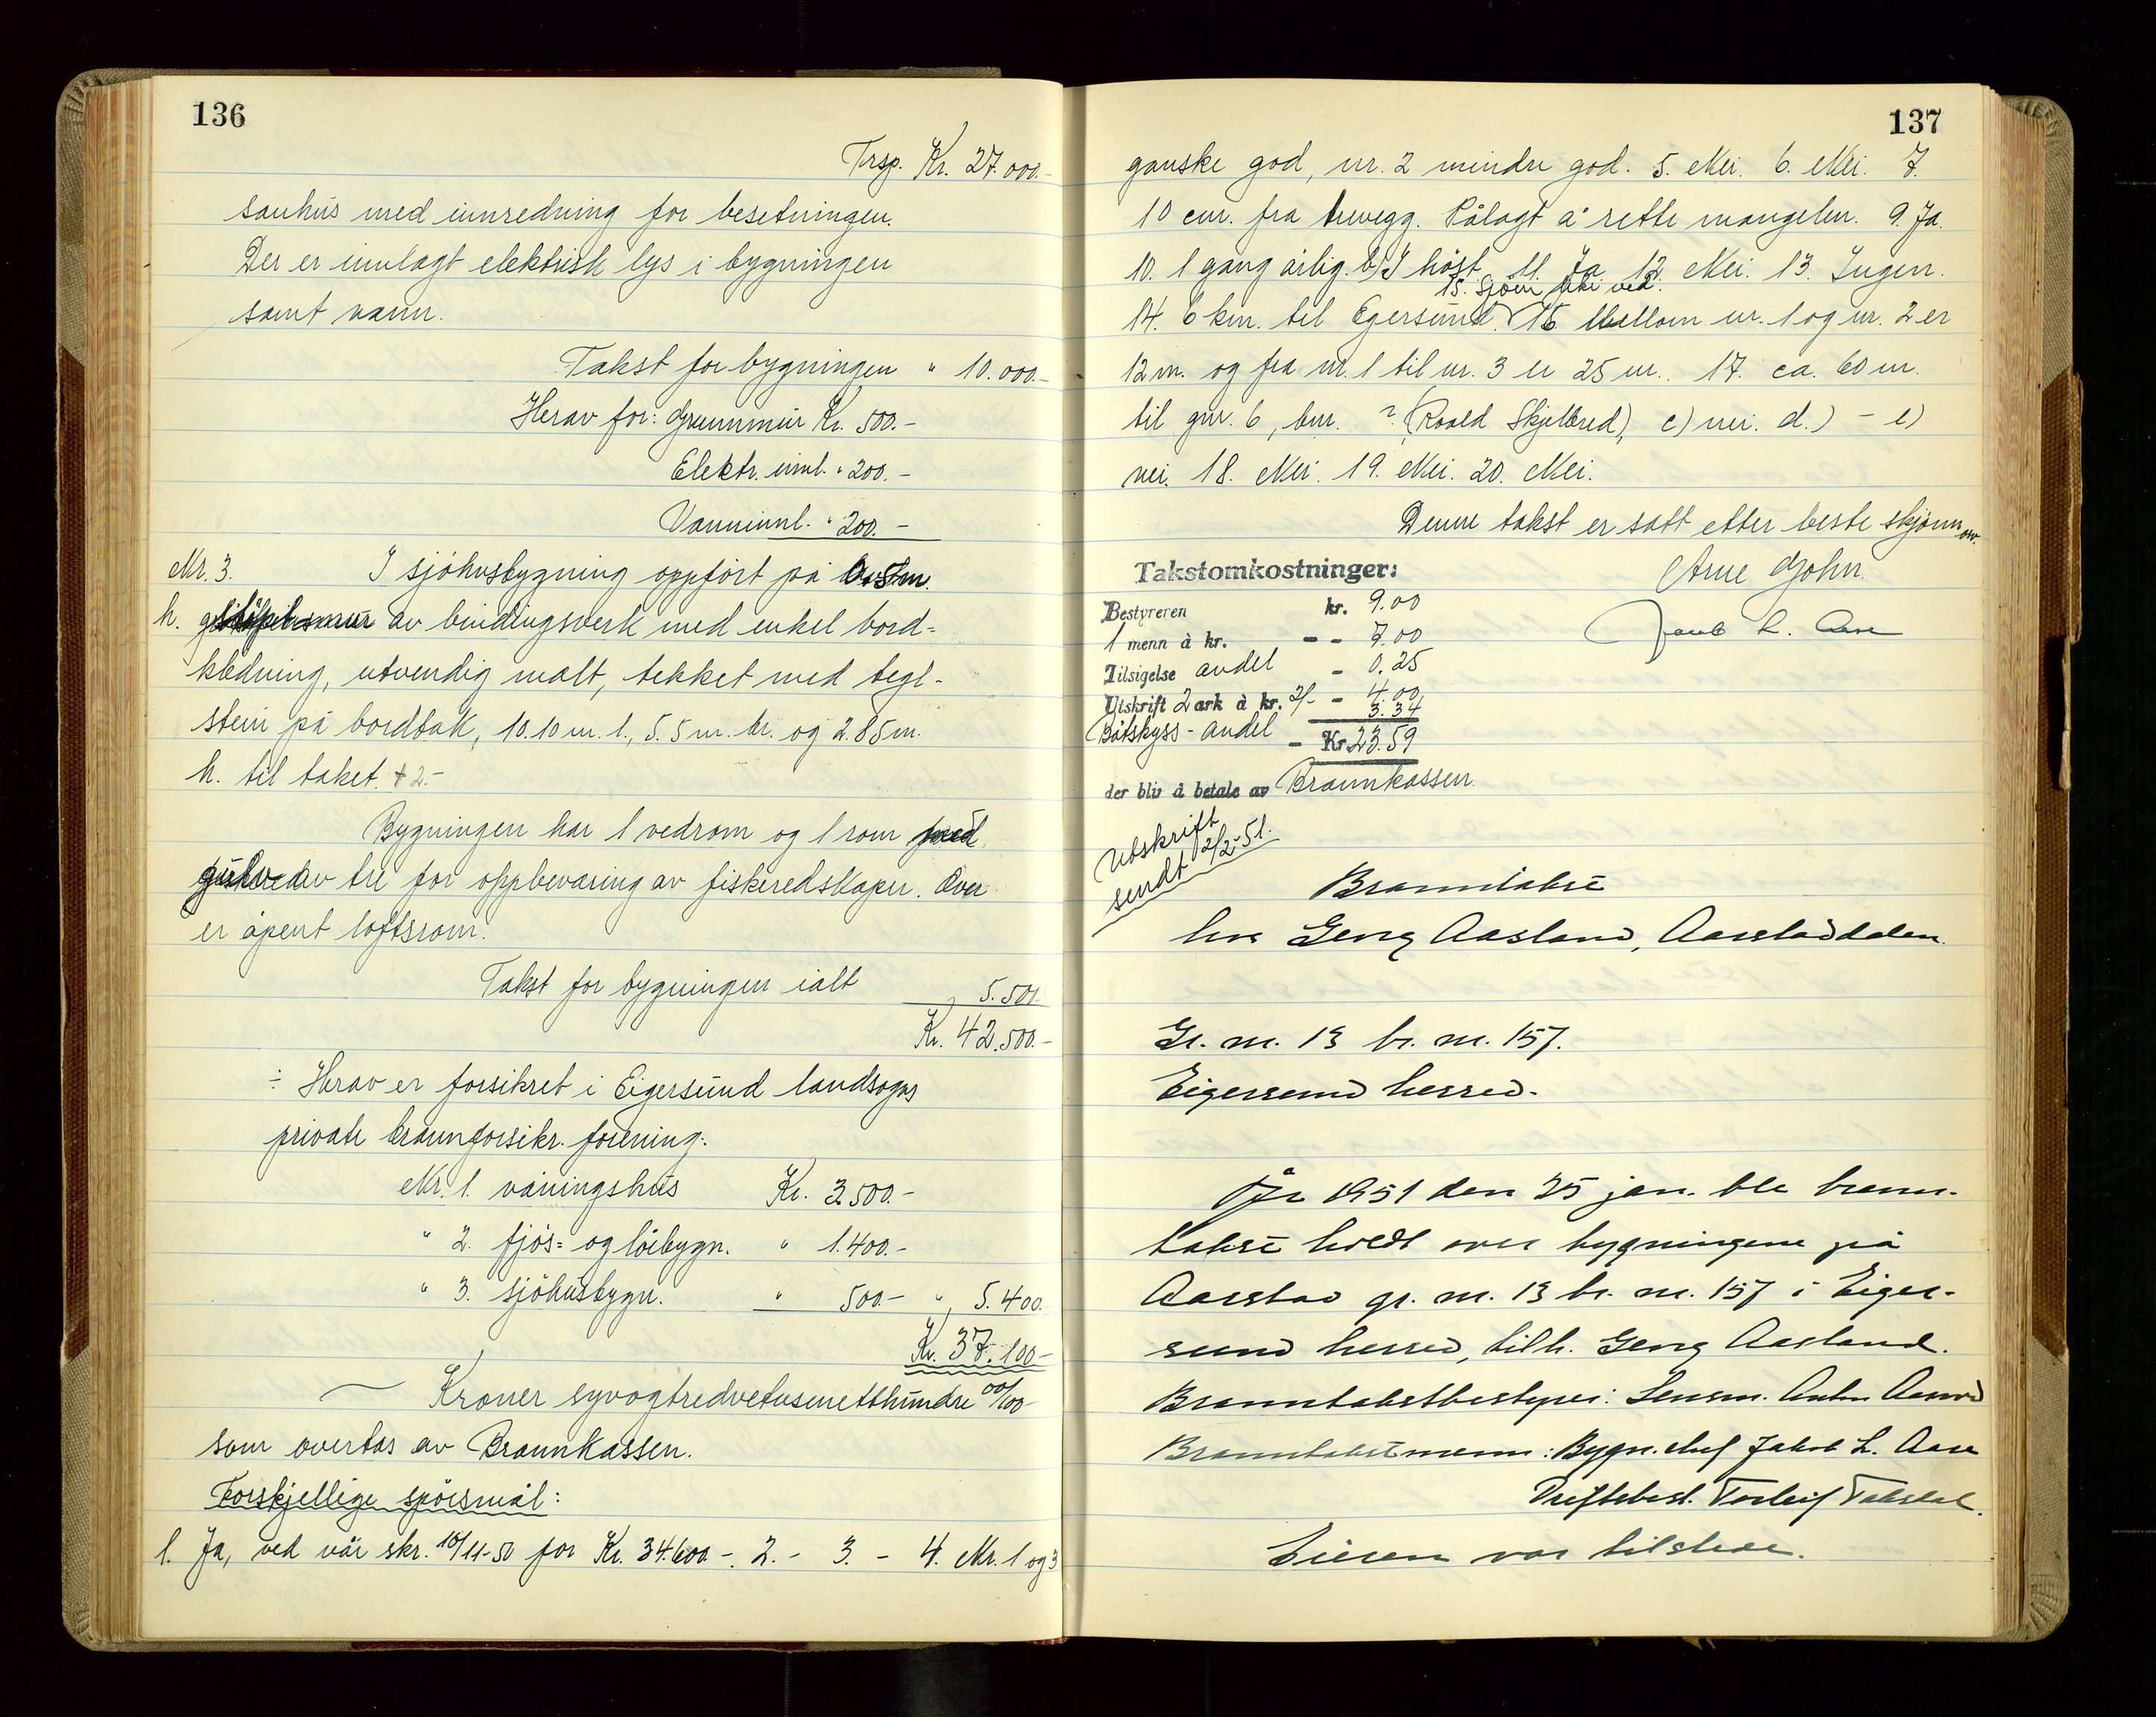 136
Trsp. Kr. 27.000.-
sauhus med innredning for besetningen.
Der er innlagt elektrisk lys i bygningen
samt vann.
Takst for bygningen " 10.000.-
Herav for: Grunnmur Kr. 500.-
Elektr. innl. " 200.-
Vanninnl. " 200.-
Nr. 3. I sjöhusbygning oppfört på
h. av bindingsverk med enkel bord-
kledning, utvendig malt, tekket med tegl-
stein på bordtak, 10.10 m. l., 5.5 m. br. og 2.85 m.
h. til taket. + 2.-
Bygningen har 1 vedrom og 1 rom
av tre for oppbevaring av fiskeredskaper. Over
er åpent loftsrom.
Takst for bygningen ialt 5.500.-
Kr. 42.500.-
÷ Herav er forsikret i Eigersund landsogns
private brannforsikr. forening:
Nr. 1. våningshus Kr. 3.500.-
" 2. fjös- og löebygn. " 1.400.-
" 3. sjöhusbygn. " 500.- " 5.400.-
Kr. 37.100.-
Kroner syvogtredvetusenetthundre 00/100
som overtas av Brannkassen.
Forskjellige spörsmål:
1. Ja, ved vår skr. 10/11-50 for Kr. 34.600.- 2. - 3. - 4. Nr. 1 og 3
137
ganske god, nr. 2 mindre god. 5. Nei. 6. Nei. 7.
10 cm. fra trevegg. Pålagt å rette mangelen. 9. Ja.
10. 1 gang årlig. b) I höst. 11. Ja. 12. Nei. 13. Ingen.
15. Sjöen like ved.
14. 6 km. til Egersund. 16 Mellom nr. 1 og nr. 2 er
12 m. og fra nr. 1 til nr. 3 er 25 m. 17. ca. 60 m.
til gnr. 6, bnr. ? (Roald Skjelbred), c) nei. d.) - e)
nei. 18. Nei. 19. Nei. 20. Nei.
Denne takst er satt etter beste skjönn
Takstomkostninger:
Arne Gjohn
Bestyreren kr. 9.00
1 menn à kr. - - 7.00
Tilsigelse andel - 0.25
Utskrift 2 ark à kr. 2/- - 4.00
Båtskyss - andel 3.34
- Kr 23.59
der bliv å betale av Brannkassen.
Jakob L. Aase
Utskrift
sendt 12/2-51.
Branntakst
hos Georg Aasland, Aarstaddalen.
Gr. nr. 13 br. nr. 157.
Eigersund herred.
År 1951 den 25 jan. ble brann-
takst holdt over bygningene på
Aarstad gr. nr. 13 br. nr. 157 i Eiger-
sund herred, tilh. Georg Aasland.
Branntakstbestyrer: Lensm. Anton
Branntakstmenn: Bygn. chef Jakob L. Aase
Driftsbest. Torleif
Eieren var tilstede.